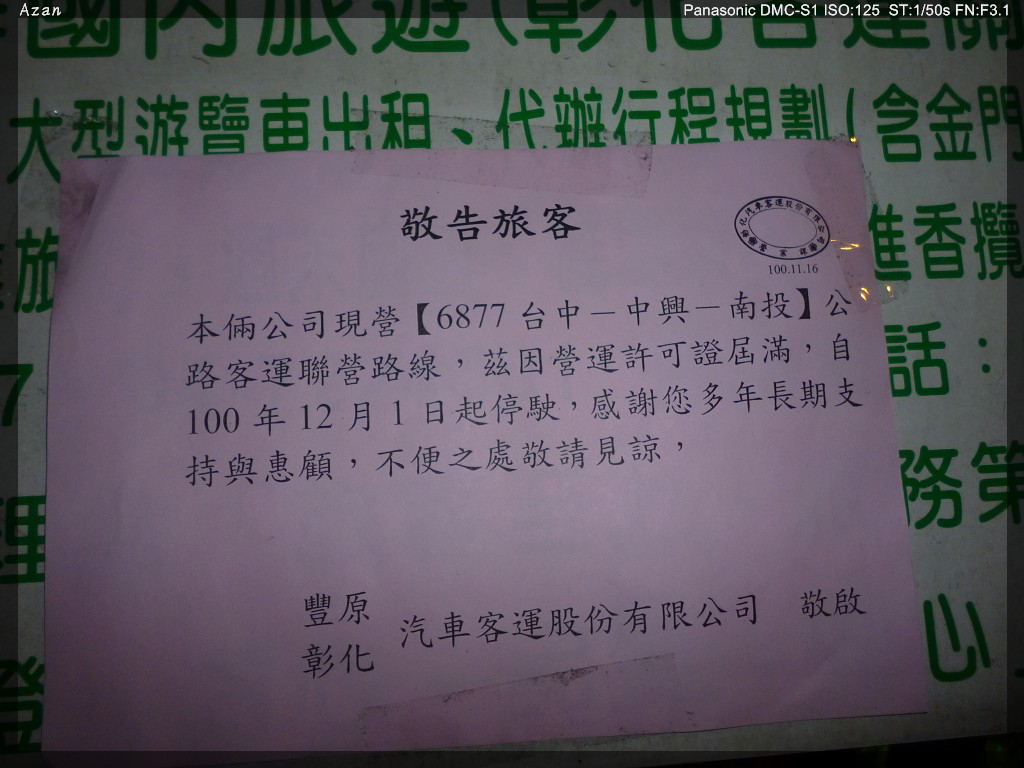 Azan
Panasonic DMC-S1 ISO:125 ST:1/50s FN:F3.1
國內旅遊(彰化客運關
大型游覽車出租、代辦行程規劃(含金門
進香攬
旅
敬告旅客
彰化汽車客運股份有限公司
100.11.16
本倆公司現營【6877 台中－中興－南投】公
路客運聯營路線，茲因營運許可證屆滿，自
100 年 12 月 1 日起停駛，感謝您多年長期支
持與惠顧，不便之處敬請見諒，
話：
7
務第
理
豐原
彰化
汽車客運股份有限公司 敬啟
心
證